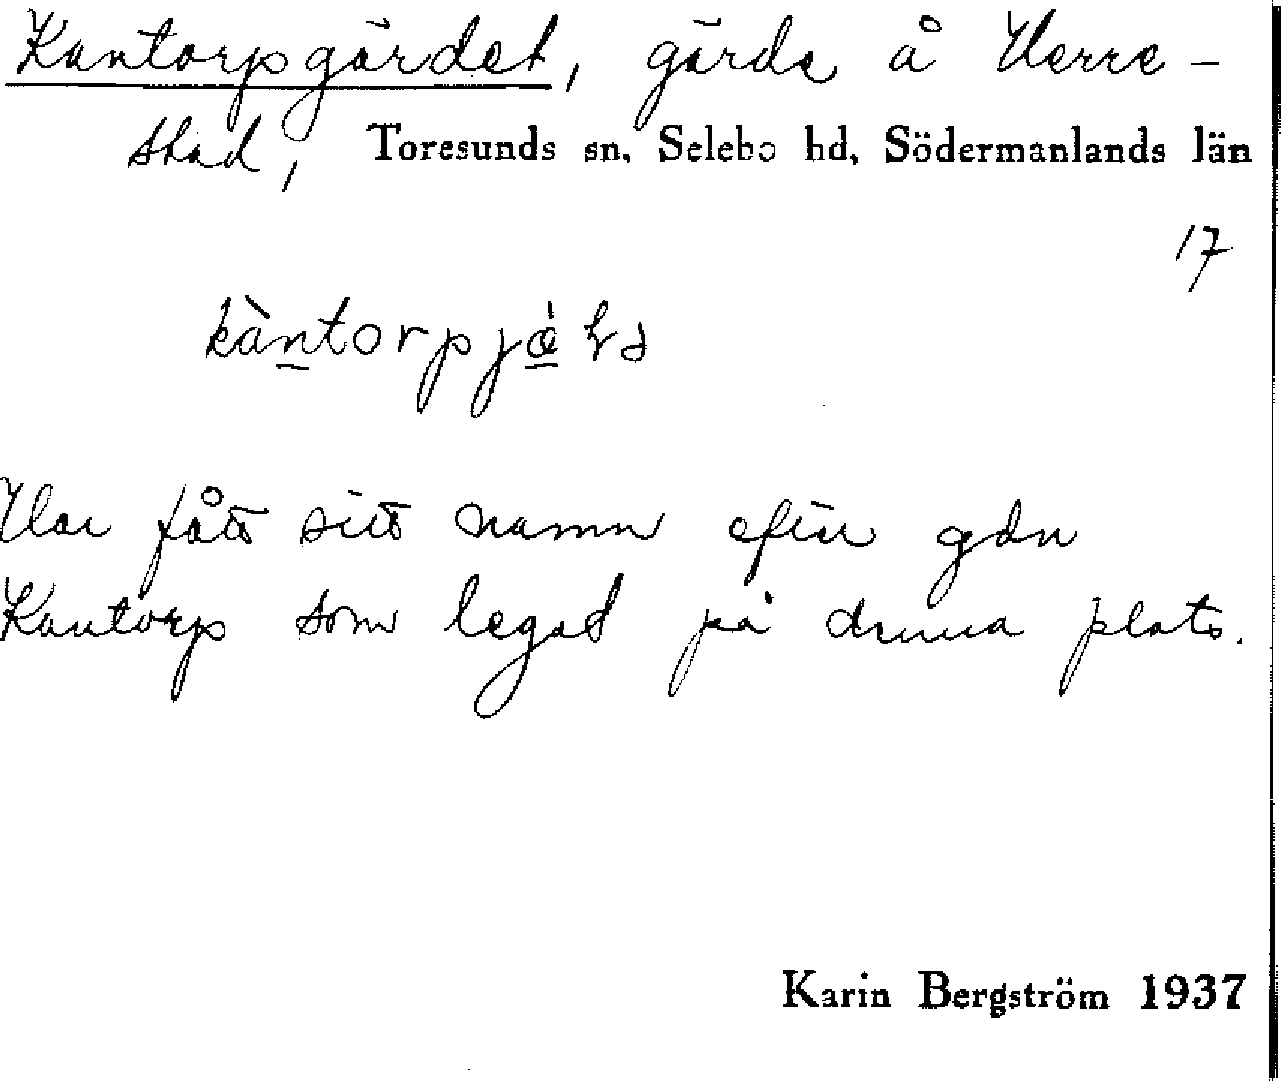 Kantorpgärdet, gärde å Herre-
stad, Toresunds sn, Selebo hd, Södermanlands län
17
Har fått sitt namn efter gdn
Kantorp som legat på denna plats.
Karin Bergström 1937